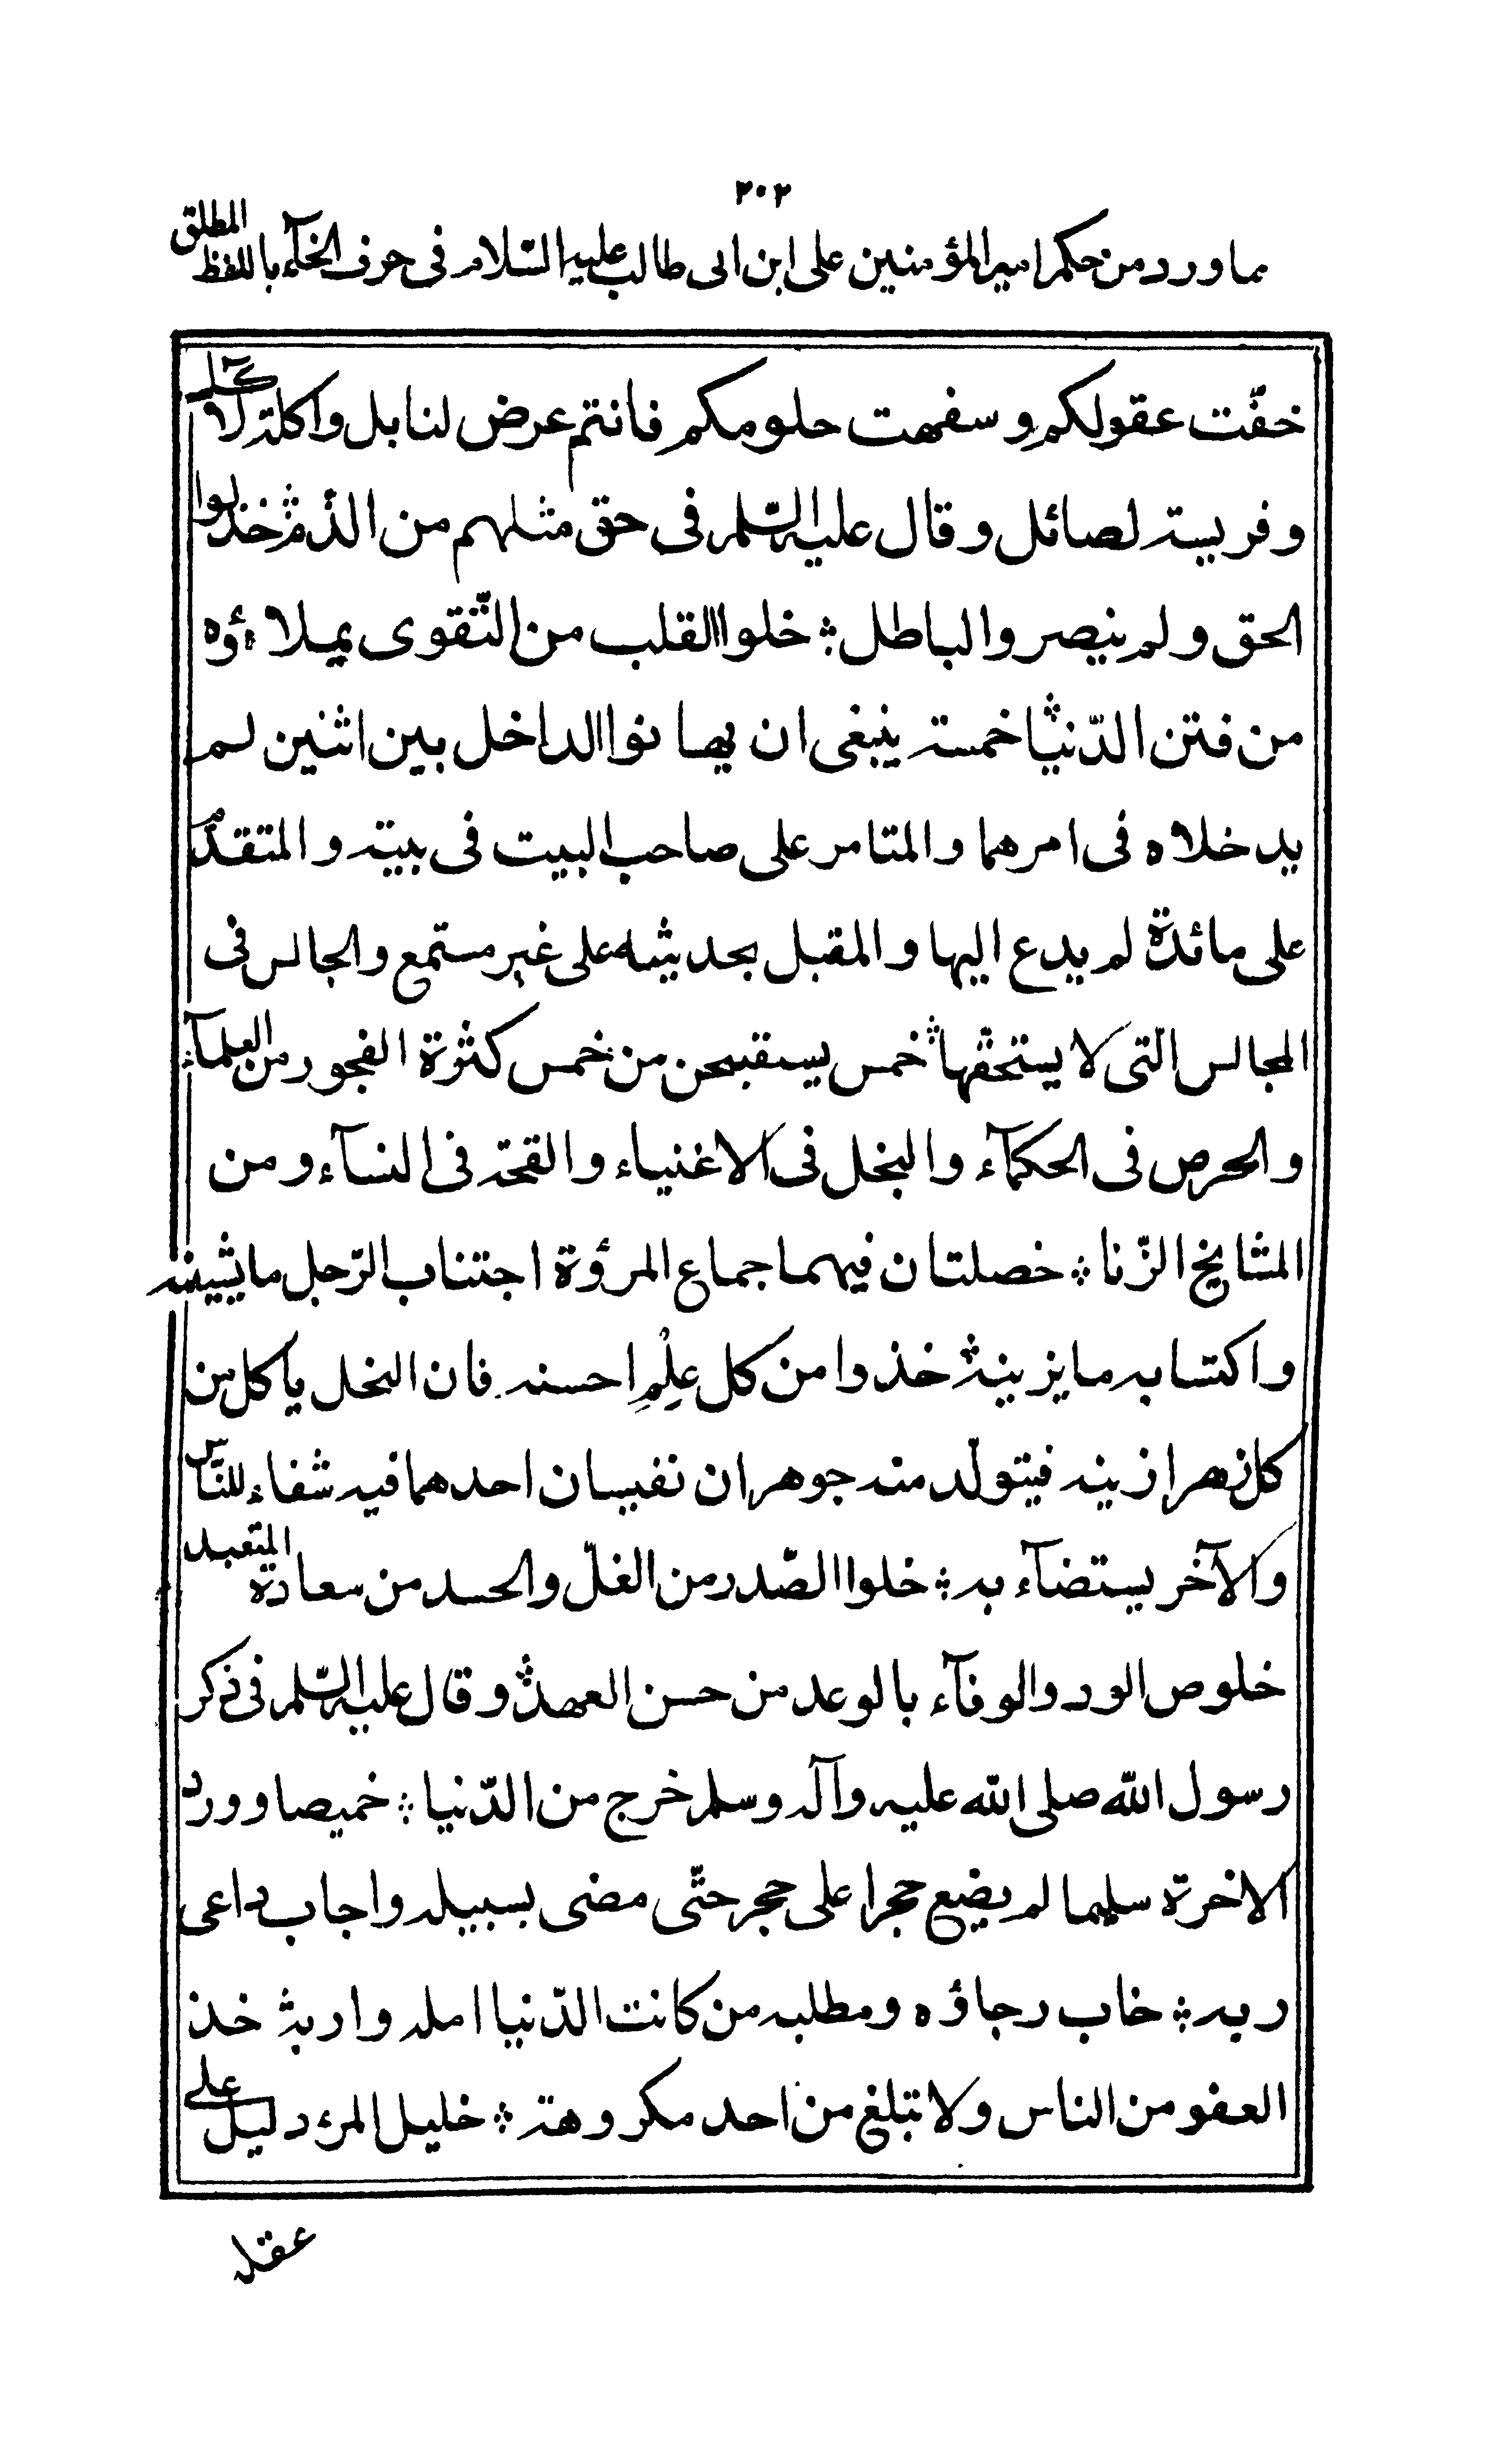 ٢٠٢
مما ورد من حكم امير المؤمنين على ابن ابى طالب عليه السّلام فى حرف الخآء باللفظ المطلق
خفّت عقولكم و سفهت حلومكم فانتم عرض لنابل واكلة لآكل
و فريسة لصائل وقال عليه السّلم فى حق مثلهم من الذّم ؞ خذلوا
الحق ولم ينصروا الباطل ؞ خلوا القلب من التّقوى يملاءؤه
من فتن الدّنيا ؞ خمسة ينبغى ان يهانوا الداخل بين اثنين لم
يدخلاه فى امرهما والمتامر على صاحب البيت فى بيته والمتقدّم
على مائدة لم يدع اليها والمقبل بحديثه على غير مستمع والجالس فى
المجالس الّتى لا يستحقّها ؞ خمس يستقبحن من خمس كثرة الفجور من العلمآء
والحرص فى الحكمآء والبخل فى الاغنياء والقحة فى النسآء ومن
المشايخ الزّنا ؞ خصلتان فيهما جماع المرؤة اجتناب الرّجل ما يشينه
واكتسابه ما يزينه ؞ خذوا من كل علِمِ احسنه فان النحل ياكل من
كل زهر ازينه فيتولّد منه جوهران نفيسان احدهما فيه شفاء للنّاس
والآخر يستضآء به ؞ خلوا الصّدر من الغلّ والحسد من سعادة المتعبد
خلوص الود والوفآء بالوعد من حسن العهد ؞ وقال عليه السّلم فى ذكر
رسول الله صلى الله عليه وآله وسلم خرج من الدّنيا ؞ خميصا وورد
الاخرة سليما لم يضع حجرا على حجر حتّى مضى بسبيله واجاب داعى
ربه ؞ خاب رجاؤه ومطلبه من كانت الدّنيا امله واربه ؞ خذ
العفو من الناس ولا تبلغ من احد مكروهة ؞ خليل المرء دليل على
عقله